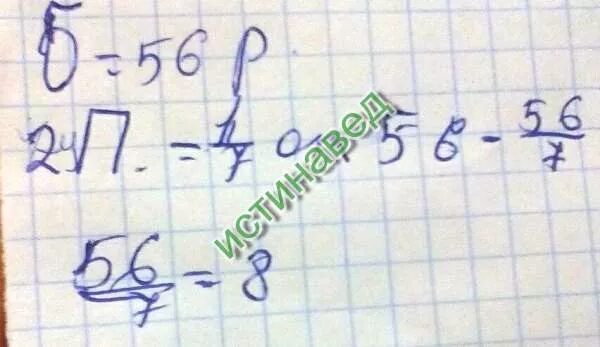 Б = 56 р
2 ч П. = 1/7 от 56 - 56/7
56/7 = 8
истинавед